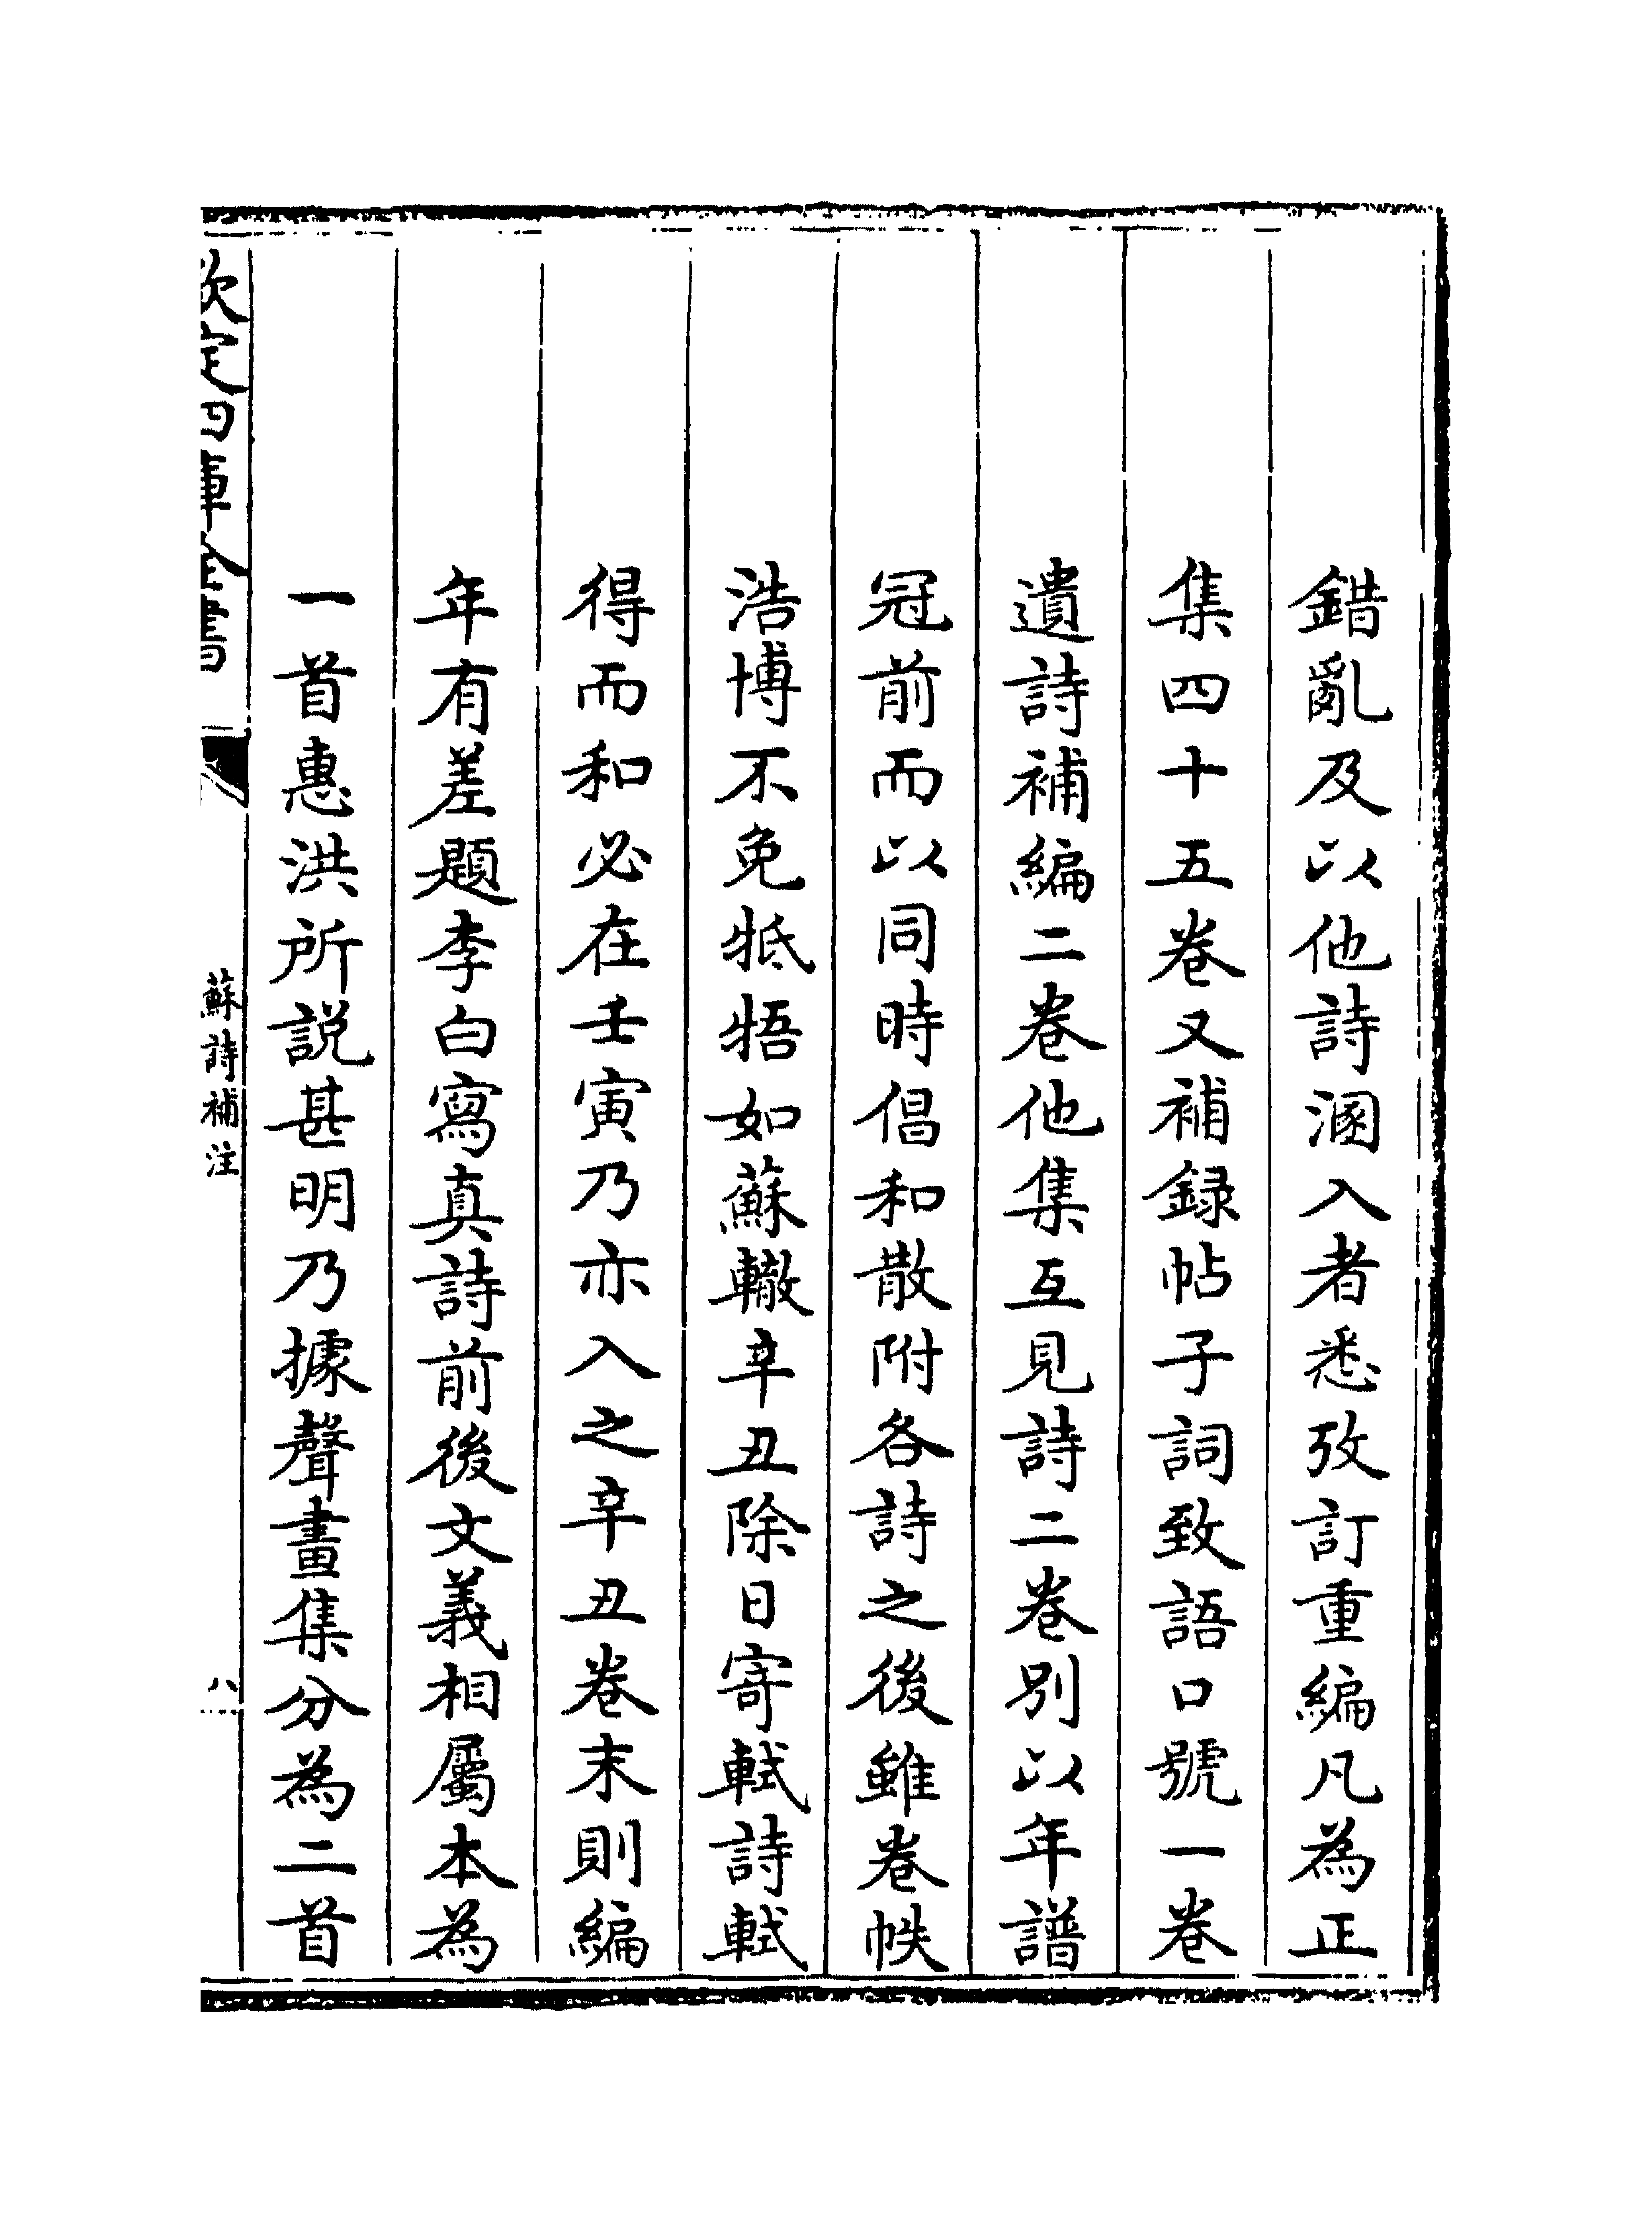 錯亂及以他詩溷入者悉攷訂重編凡為正
集四十五卷又補録帖子詞致語口號一卷
遺詩補編二卷他集互見詩二卷别以年譜
冠前而以同時倡和散附各詩之後雖卷帙
浩博不免牴牾如蘇轍辛丑除日寄軾詩軾
得而和必在壬寅乃亦入之辛丑卷末則編
年有差題李白寫真詩前後文義相屬本為
一首惠洪所説甚明乃據聲畫集分為二首
欽定四庫全書
蘇詩補注
八